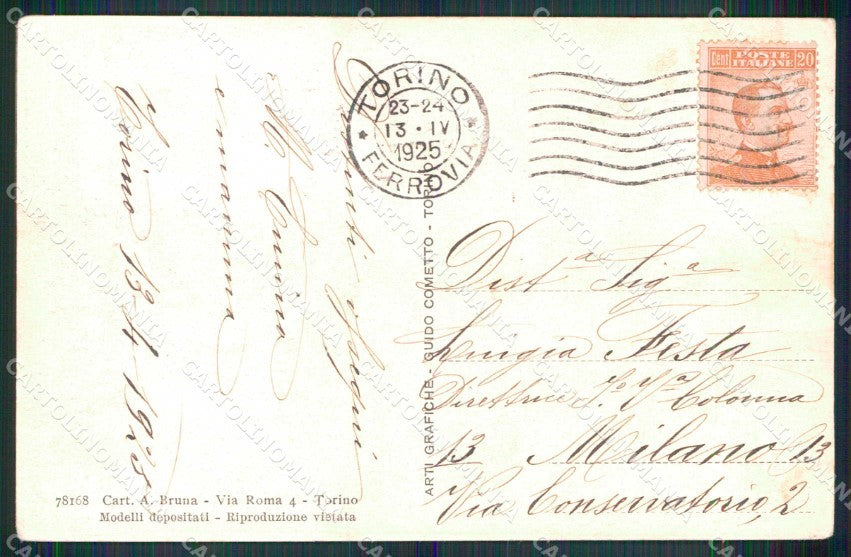 Distinti ossequi
e mamma
Torino 13-4-1925
TORINO
23-24
13·IV
1925
FERROVIA
Cent POSTE ITALIANE 20
Dist.ª Sig.ª
Luigia Festa
Direttrice
Colonna
13 Milano 13
Via Conservatorio, 2
ARTI GRAFICHE - GUIDO COMETTO - TORINO
78168 Cart. A. Bruna - Via Roma 4 - Torino
Modelli depositati - Riproduzione vietata
CARTOLINOMANIA